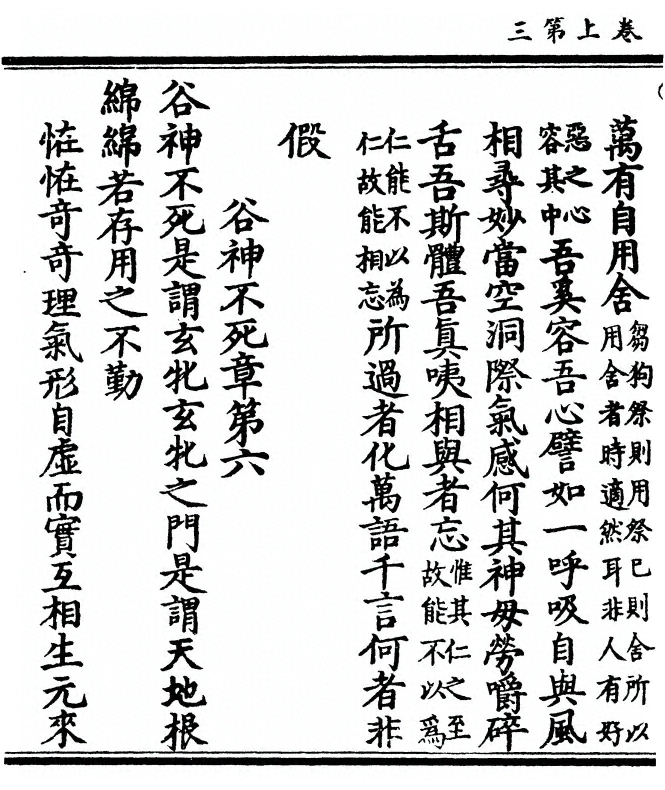 卷上第三
萬有自用舍芻狗祭則用祭已則舍所以用舍者時適然耳非人有好
惡之心容其中吾奚容吾心譬如一呼吸自與風
相尋妙當空洞際氣感何其神毋勞嚼碎
舌吾斯體吾眞咦相與者忘惟其仁之至故能不以爲
仁能不以為仁故能相忘所過者化萬語千言何者非
假
谷神不死章第六
谷神不死是謂玄牝玄牝之門是謂天地根
綿綿若存用之不勤
恠恠奇奇理氣形自虛而實互相生元來